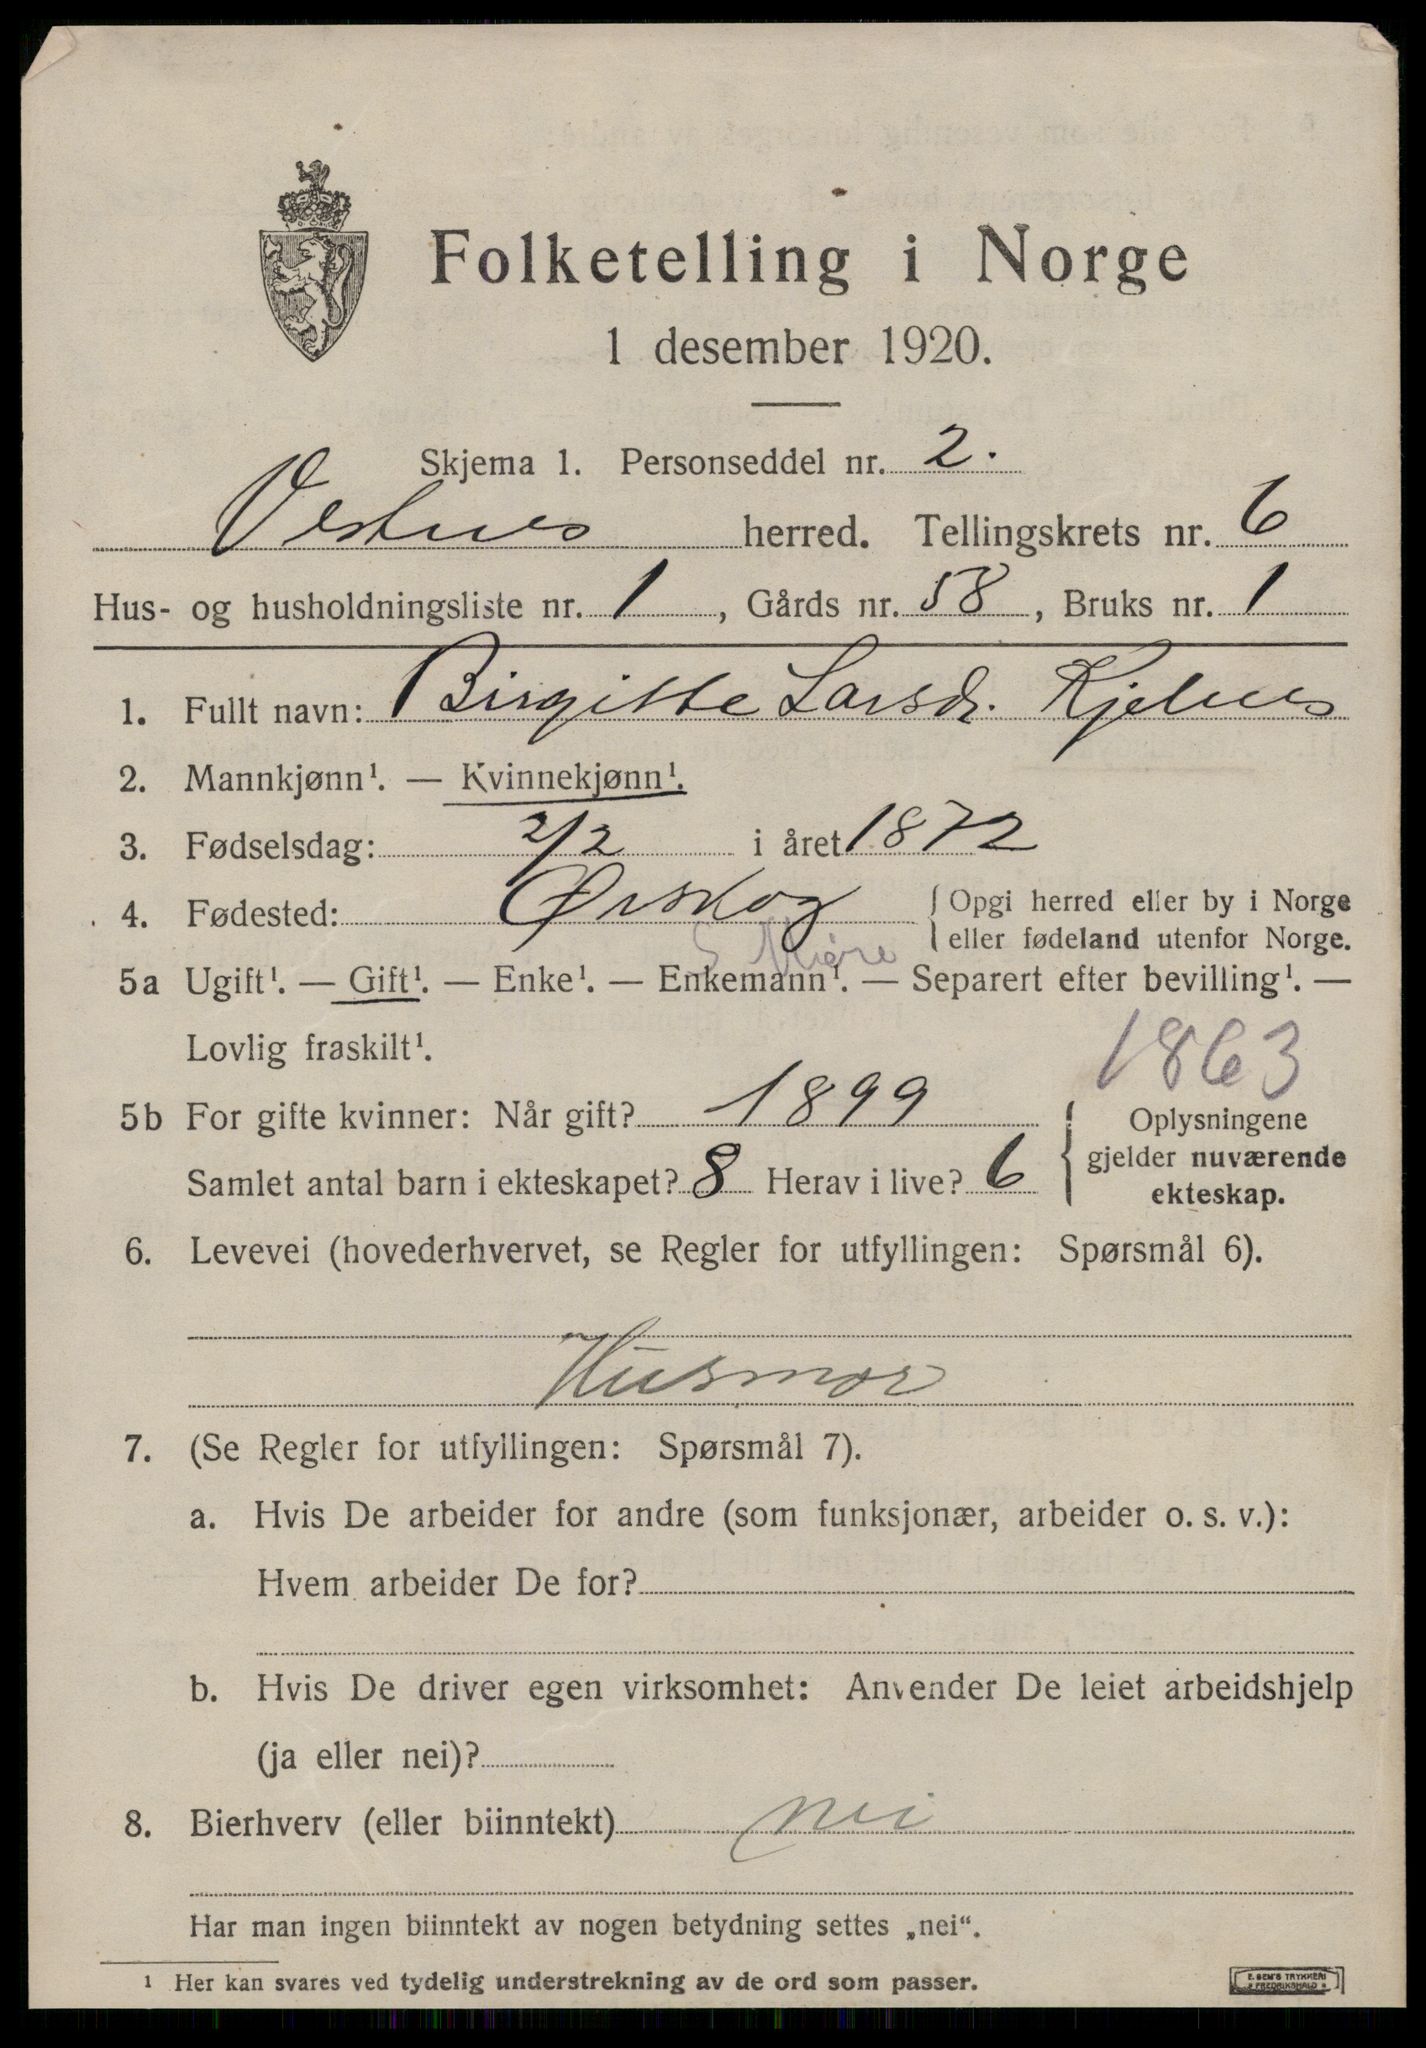 Folketelling i Norge
1 desember 1920.
Skjema 1. Personseddel nr. 2.
Vestnes herred. Tellingskrets nr. 6
Hus- og husholdningsliste nr. 1, Gårds nr. 58, Bruks nr. 1
1. Fullt navn: Birgitte Larsdr. Kjelnes
2. Mannkjønn¹. — Kvinnekjønn¹.
3. Fødselsdag: 2/2 i året 1872
4. Fødested: Ørskog { Opgi herred eller by i Norge
eller fødeland utenfor Norge.
S Møre
5a Ugift¹. — Gift¹. — Enke¹. — Enkemann¹. — Separert efter bevilling¹. —
Lovlig fraskilt¹.
1863
5b For gifte kvinner: Når gift? 1899 { Oplysningene
gjelder nuværende
Samlet antal barn i ekteskapet? 8 Herav i live? 6
ekteskap.
6. Levevei (hovederhvervet, se Regler for utfyllingen: Spørsmål 6).
Husmor
7. (Se Regler for utfyllingen: Spørsmål 7).
a. Hvis De arbeider for andre (som funksjonær, arbeider o. s. v.):
Hvem arbeider De for?
b. Hvis De driver egen virksomhet: Anvender De leiet arbeidshjelp
(ja eller nei)?
8. Bierhverv (eller biinntekt) nei
Har man ingen biinntekt av nogen betydning settes „nei“.
¹ Her kan svares ved tydelig understrekning av de ord som passer.
E. SEM'S TRYKKERI
FREDRIKSHALD